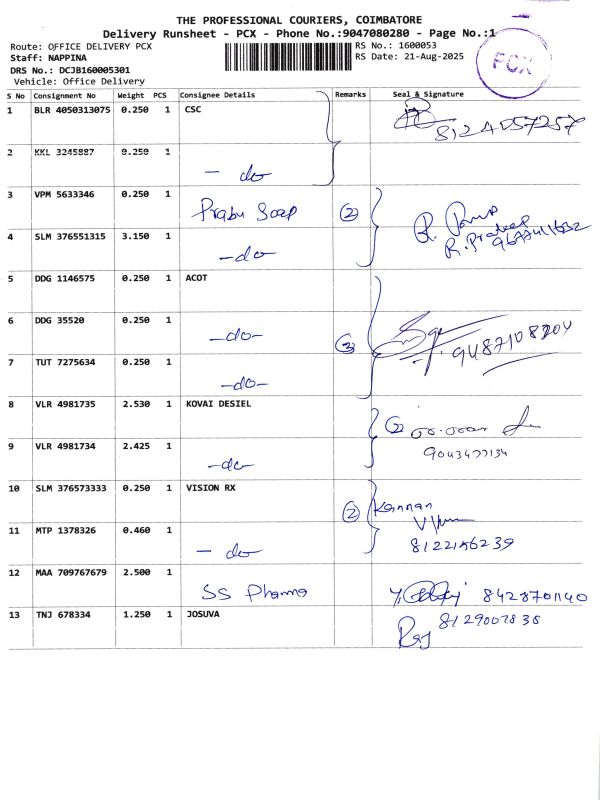 THE PROFESSIONAL COURIERS, COIMBATORE
Delivery Runsheet - PCX - Phone No.:9047080280 - Page No.:1
Route: OFFICE DELIVERY PCX
RS No.: 1600053
Staff: NAPPINA
RS Date: 21-Aug-2025
DRS No.: DCJB160005301
Vehicle: Office Delivery
PCX
S No Consignment No Weight PCS Consignee Details Remarks Seal & Signature
1 BLR 4050313075 0.250 1 CSC
8124057257
2 KKL 3245887 0.250 1
- do
3 VPM 5633346 0.250 1
Prabu Soap 2
R. Pradeep
4 SLM 376551315 3.150 1
-do-
5 DDG 1146575 0.250 1 ACOT
6 DDG 35520 0.250 1
-do- 3 9487108204
7 TUT 7275634 0.250 1
-do-
8 VLR 4981735 2.530 1 KOVAI DESIEL
2
9 VLR 4981734 2.425 1
-do-
10 SLM 376573333 0.250 1 VISION RX
2 Kannan
11 MTP 1378326 0.460 1
- do 8122156239
12 MAA 709767679 2.500 1
SS Pharma 8428701140
13 TNJ 678334 1.250 1 JOSUVA
Raj 8129002838